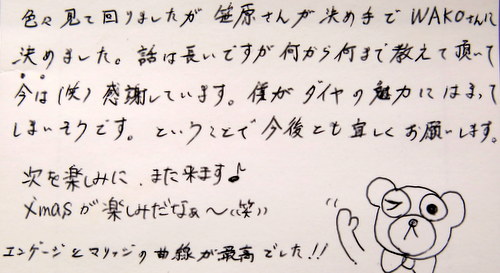 色々見て回りましたが笹原さんが決め手でWAKOさんに
決めました。話は長いですが何から何まで教えて頂いて
今は(笑)感謝しています。僕がダイヤの魅力にはまって
しまいそうです。ということで今後とも宜しくお願いします。
次を楽しみに、また来ます♪
Xmasが楽しみだなぁ～(笑)
エンゲージとマリッジの曲線が最高でした!!